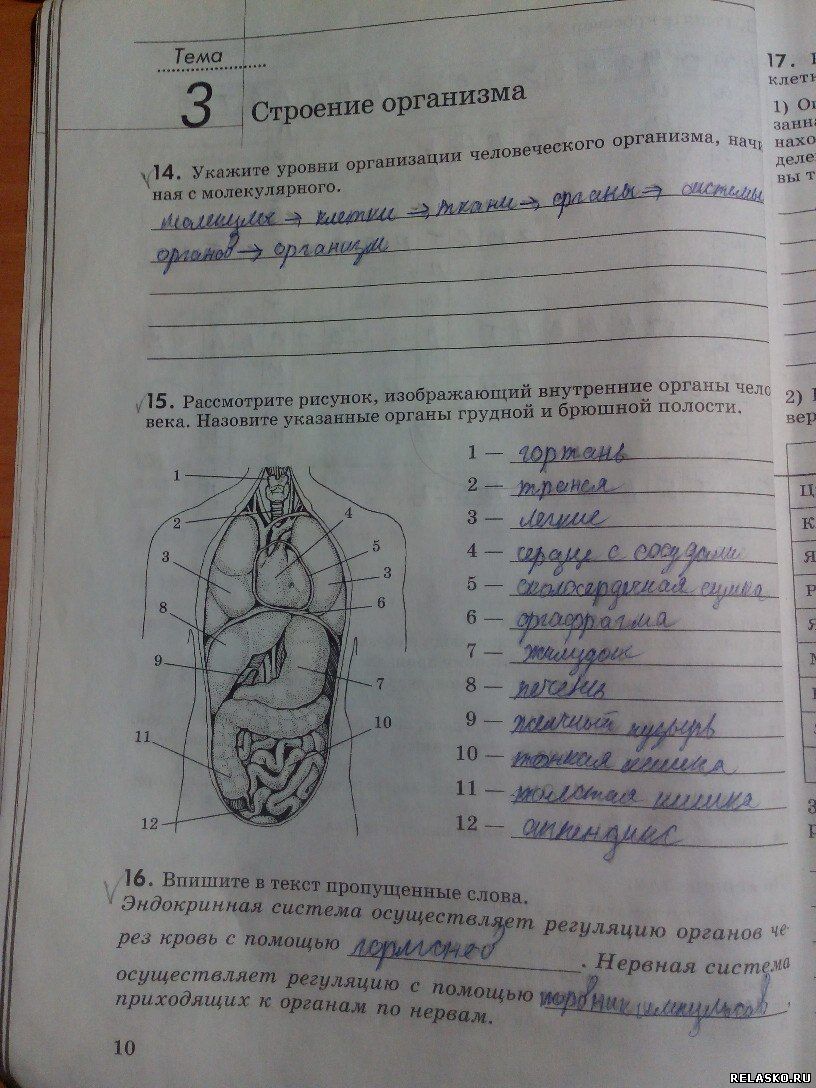 Тема
3 Строение организма
14. Укажите уровни организации человеческого организма, начи
ная с молекулярного.
молекулы → клетки → ткани → органы → системы
органов → организм
15. Рассмотрите рисунок, изображающий внутренние органы чело
века. Назовите указанные органы грудной и брюшной полости.
1 — гортань
2 — трахея
3 — легкие
4 — сердце с сосудами
5 — околосердечная сумка
6 — диафрагма
7 — желудок
8 — печень
9 — желчный пузырь
10 — тонкая кишка
11 — толстая кишка
12 — аппендикс
1
2
3
4
5
3
6
8
9
7
10
11
12
16. Впишите в текст пропущенные слова.
Эндокринная система осуществляет регуляцию органов че
рез кровь с помощью гормонов. Нервная система
осуществляет регуляцию с помощью импульсов,
приходящих к органам по нервам.
10
17.
клетк
1) Оп
занна
нахо
деле
вы т
2)
вер
RELASKO.RU